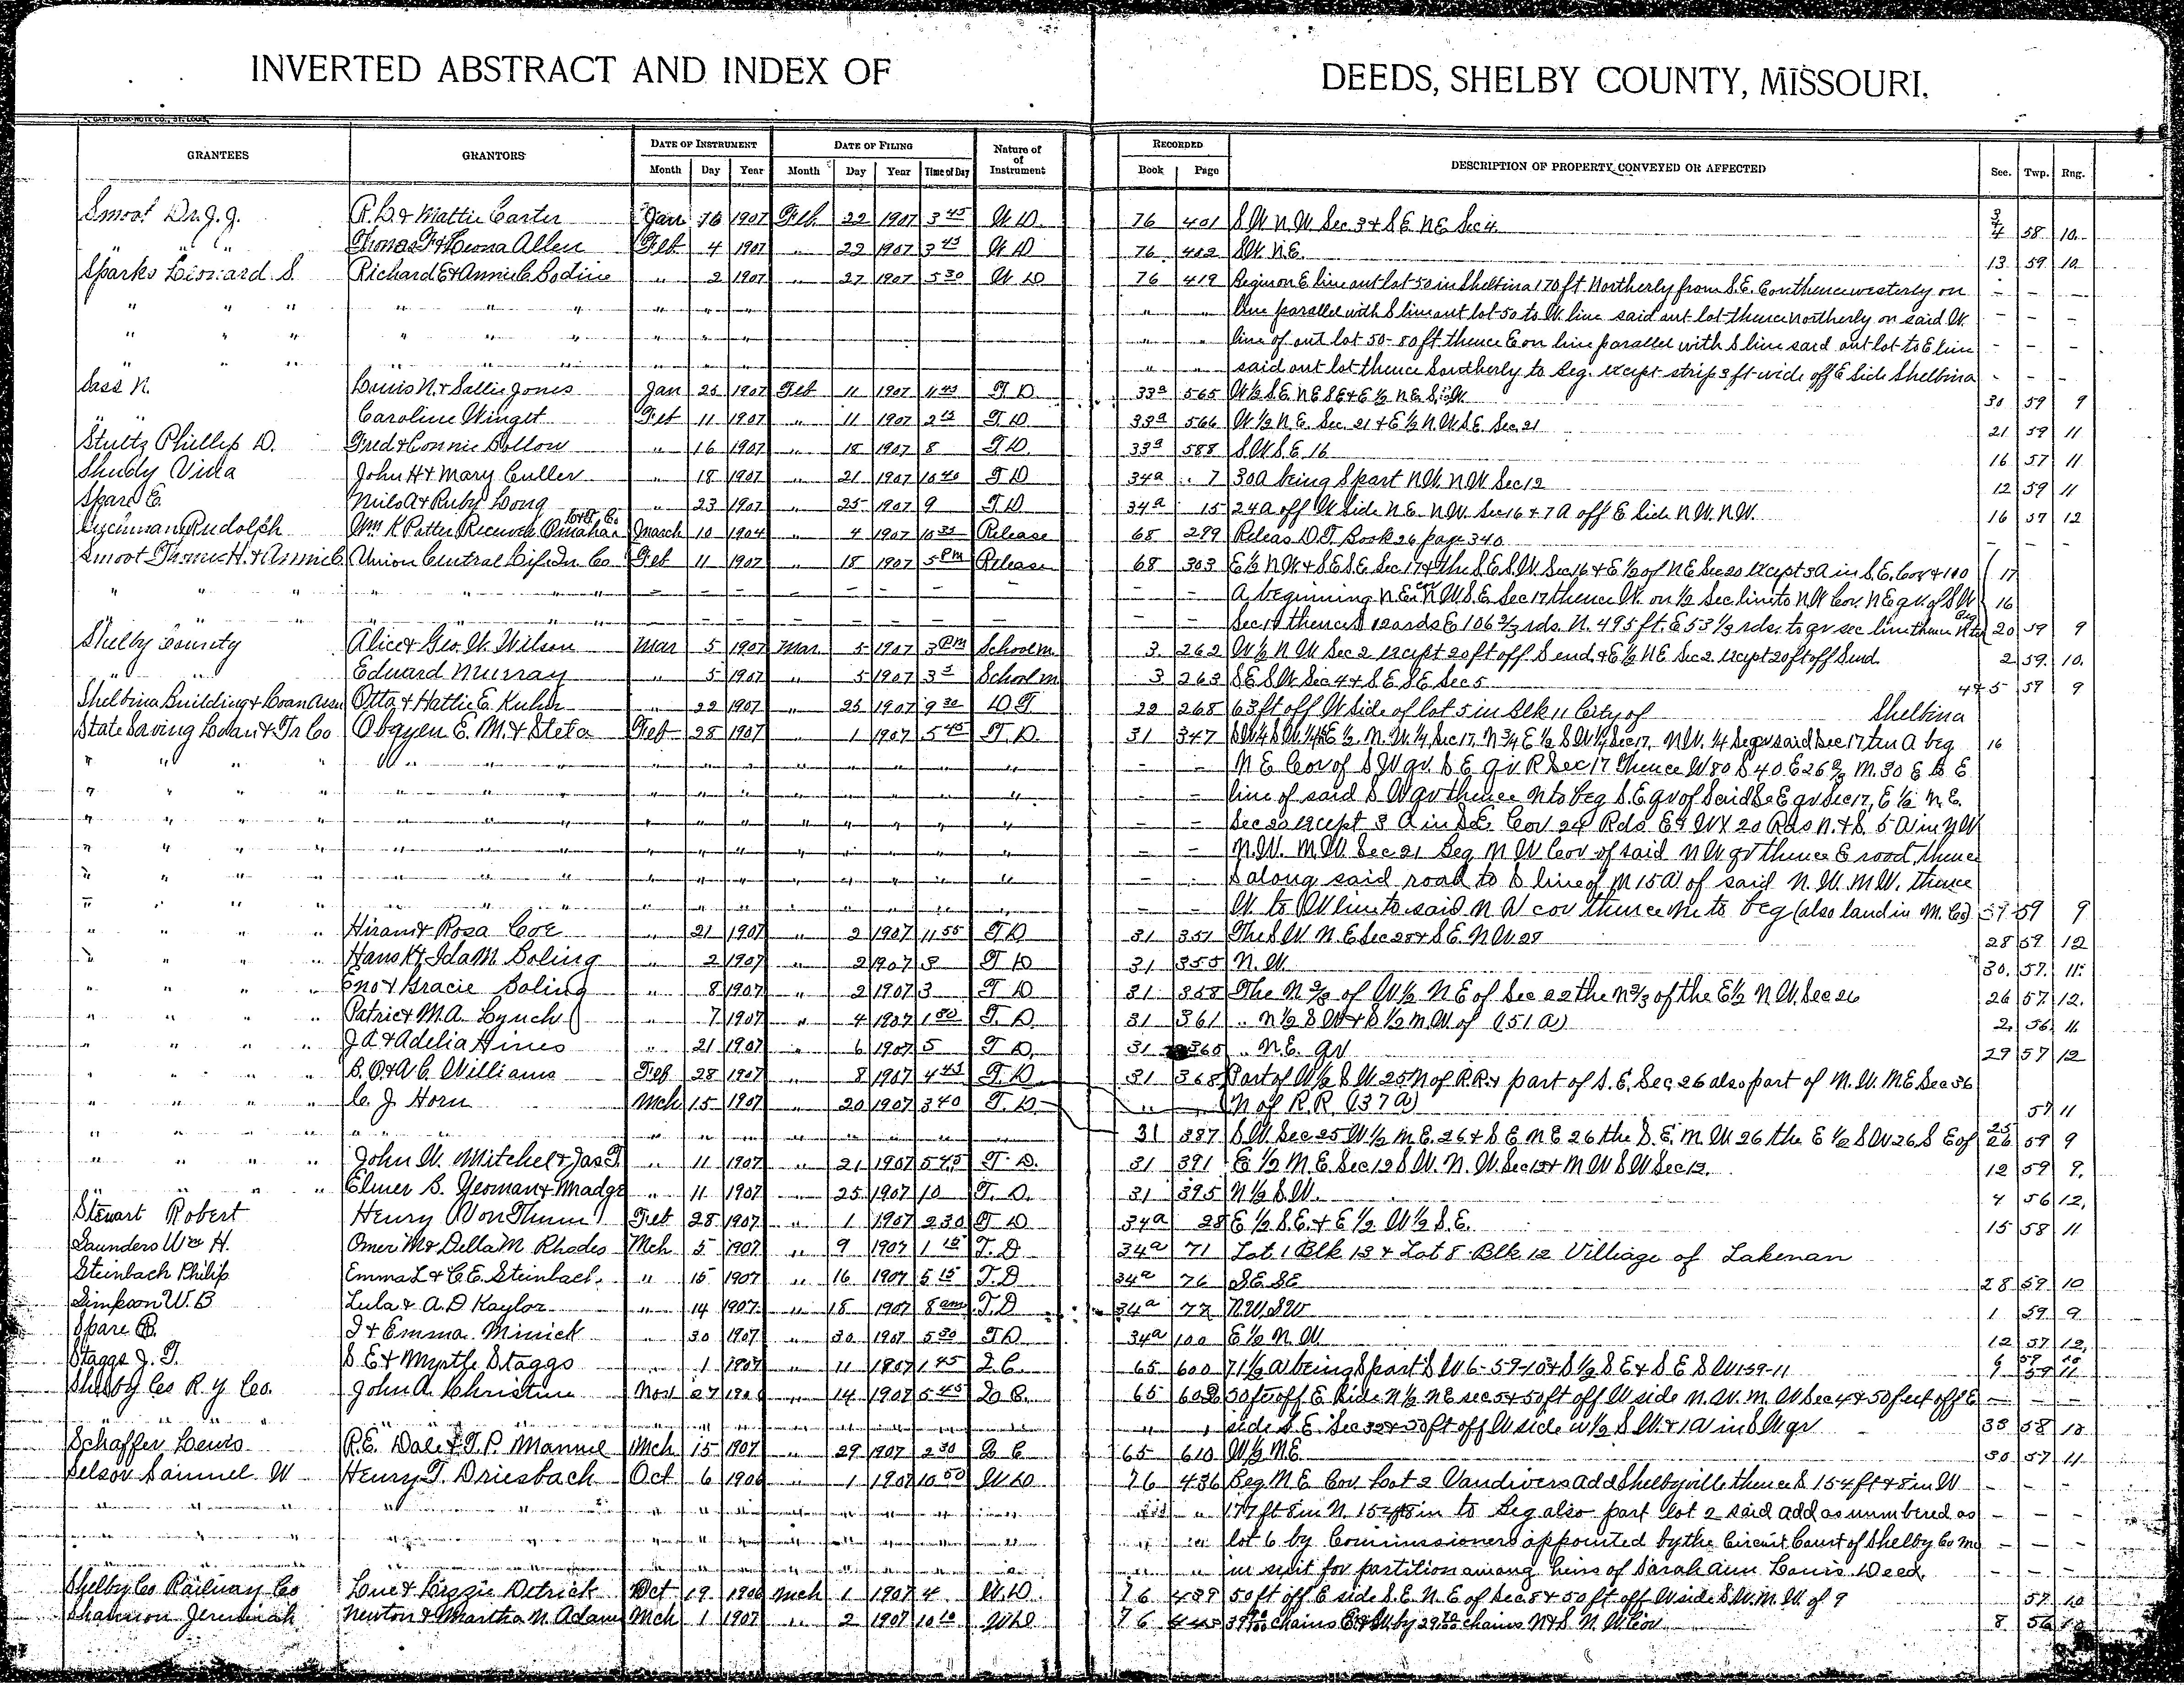 INVERTED ABSTRACT AND INDEX OF DEEDS, SHELBY COUNTY, MISSOURI.
GRANTEES GRANTORS DATE OF INSTRUMENT DATE OF FILING Nature of of Instrument RECORDED DESCRIPTION OF PROPERTY CONVEYED OR AFFECTED Sec. Twp. Rng.
Month Day Year Month Day Year Time of Day Book Page
Smoot Dr. J. J. R. L. & Mattie Carter Jan 16 1907 Feb 22 1907 3 45 W D 76 401 S W N W Sec 3 & S E N E Sec 4 3/4 58 10
" " " Thomas F & Leona Allen Feb 4 1907 " 22 1907 3 45 W D 76 402 S W. N. E. 13 59 10
Sparks Leonard S. Richard E & Annie C Bodine " 2 1907 " 27 1907 5 30 W D 76 419 Begin on E line out lot 50 in Shelbina 170 ft Northerly from S. E. Cor thence westerly on - - -
" " " " " " " " " line parallel with S line out lot 50 to W line said out lot thence northerly on said W. - - -
" " " " " " " " line of out lot 50 - 80 ft thence E on line parallel with S line said out lot to E line - - -
" " " " " said out lot thence Southerly to beg. except strip 3 ft wide off E Side Shelbina - - -
Sass N. Louis N. & Sallie Jones Jan 25 1907 Feb 11 1907 11 45 T D 33a 565 W ½ S E N E S E & E ½ N E S W 30 59 9
" " Caroline Winget Feb 11 1907 " 11 1907 2 15 T D 33a 566 W ½ N. E. Sec. 21 & E ½ N. W S E Sec. 21 21 59 11
Stultz Phillip D. Fred & Connie Bollow " 16 1907 " 18 1907 8 T D. 33a 588 S W S E 16 16 57 11
Shuby Vida John H & Mary Culler " 18 1907 " 21 1907 10 40 T D 34a 7 30 A being S part N W. N W Sec 12 12 59 11
Spare E. Milo A & Ruby Long " 23 1907 " 25 1907 9 T D 34a 15 24 A off W Side N E. N W. Sec 16 & 7 A off E Side N W. N W. 16 57 12
Rudolph Wm K Potter Receiver Omaha L & T Co March 10 1904 " 4 1907 10 35 Release 68 299 Releas D. T. Book 26 page 340 - -
Smoot Thomas H. & Annie C Union Central Life In. Co Feb 11 1907 " 18 1907 5 PM Release 68 303 E ½ N W & S E S E Sec 17 & the S E S W. Sec 16 & E ½ of N E Sec 20 except 3 A in S. E. Cor & 110 17
" " " " " " - - - - - - - - - A beginning N E cor N W S E Sec 17 thence W. on ½ Sec line to N W Cor. N E qr of S W 16
- - - - - - Sec 17 thence S 120 rds E 106 2/3 rds. N. 495 ft. E 53 1/3 rds. to qr sec line thence N to beg 20 59 9
Shelby County Alice & Geo. W. Wilson Mar 5 1907 Mar 5 1907 3 PM School m. 3 262 W ½ N W Sec 2 except 20 ft off S end & E ½ N E Sec 2. except 20 ft off S end. 2 59. 10.
" " Eduard Murray " 5 1907 " 5 1907 3 School m 3 263 S E S W Sec 4 & S E S E Sec 5 4&5 59 9
Shelbina Building & Loan Assn Otta & Hattie E. Kuhn " 22 1907 " 25 1907 9 30 D T 22 268 63 ft off W Side of lot 5 in Blk 11 City of Shelbina
State Saving Loan & Tr Co E. M. & Steta Feb 28 1907 " 1 1907 5 45 T. D. 31 347 E ½ N. W. ¼ Sec 17, N ¾ E ½ S W ¼ Sec 17, N W. ¼ said Sec 17 ten A beg 16
" " " " " - - N E Cor of S W qr. S E qr Sec 17 Thence W 80 S 40 E 26 2/3 N. 30 E to E
" " " " " - - line of said S W qr thence N to beg S. E qr of Said S E qr Sec 17, E ½ N. E.
" " " " " - - Sec 20 except 3 A in S. E. Cor 24 Rds E & W X 20 Rds N. & S. 5 A in N W
" " " " " - - N. W. N W Sec 21 Beg N W Cor of said N W qr thence E road thence
" " " " " - - S along said road to S line of N 15 A of said N. W. N W. thence
" " " " " - - W. to W line to said N W cor thence N to beg (also land in M. Co) 59 9
" " " " Hiram & Rosa Coe " 21 1907 " 2 1907 11 55 T D 31 351 The S W N. E Sec 28 & S E. N W 28 28 59. 12
" " " " Hans K & Ida M. Boling " 2 1907 " 2 1907 8 T D 31 355 N. W. 30. 57. 11.
" " " " Eno & Gracie Boling " 8 1907 " 2 1907 3 T D 31 358 The N 2/3 of W ½ N E of Sec 22 the N 2/3 of the E ½ N W. Sec 26 26 57 12.
" " " " Patric & M. A. Lynch " 7 1907 " 4 1907 1 30 T. D. 31 361 " N ½ S W & S ½ N W. of (51 A) 2. 56 11.
" " " " J A & Adelia Hines " 21 1907 " 6 1907 5 T D. 31 365 " N. E. qr 29 57 12
" " " " B. O & A. C. Williams Feb 28 1907 " 8 1907 4 45 T. D 31 368 Part of W ½ S W. 25 N of R. R. & part of S. E. Sec. 26 also part of N. W. N E Sec 36
" " " " C. J. Horn Mch 15 1907 " 20 1907 3 40 T. D " (N of R. R. (37 A) 57 11
" " " " " " " " 31 387 S W. Sec 25 W ½ N E. 26 & S E N E 26 the S. E. N. W 26 the E ½ S W 26 S E of 25 26 59 9
" " " " John W. Mitchel & Jas T. " 11 1907 " 21 1907 5 45 T. D. 31 391 E ½ N E. Sec 12 S W. N. W. Sec 12 & N W S W Sec 12. 12 59 9.
" " " " Elmer S. Yeoman & Madge " 11 1907 " 25 1907 10 T. D. 31 395 N ½ S. W. 4 56 12.
Stewart Robert Henry Von Thun Feb 28 1907 " 1 1907 2 30 T D 34a 28 E ½ S E. & E ½ W ½ S. E. 15 58 11
Saunders Wm H. Omer M & Della M. Rhodes Mch 5 1907 " 9 1907 1 15 T. D 34a 71 Lot 1 Blk 13 & Lot 8 Blk 12 Villiage of Lakenan
Steinbach Philip Emma L & C. E. Steinbach " 15 1907 " 16 1907 5 15 T. D 34a 76 S E. S E 28 59 10
Simpson W. B Lula & A. D Kaylor " 14 1907 " 18 1907 8 am T. D 34a 77 N. W. S W 1 59 9
Spare B. I & Emma Minick " 30 1907 " 30 1907 5 30 T D. 34a 100 E ½ N. W. 12 57 12.
Staggs J. T. S. E & Myrtle Staggs " 1 1907 " 11 1907 1 45 Q. C. 65 600 71 ½ A being S part S W 6-59-10 & S ½ S E & S E S W 1-59-11 59 11
Shelby Co R. y Co. John A. Christine Nov 27 190 " 14 1907 5 45 Q C. 65 602 50 ft off E Side N ½ N E sec 5 & 50 ft off W side N. W. N. W Sec 4 & 50 feet off E - -
" " " " " side S. E. Sec 32 & 50 ft off W side W ½ S W. & 1 A in S W qr 33 58 10
Schaffer Lewis R. E. Dale & T. P. Manuel Mch 15 1907 " 29 1907 2 30 Q C 65 610 W ½ N E 30 57 11
Selsor Samuel W Henry T. Driesbach Oct 6 1906 " 1 1907 10 50 W D 76 436 Beg N E Cor Lot 2 Vandivers add Shelbyville thence S 154 ft & 8 in W - - -
" " " " " 177 ft 8 in N. 154 ft 8 in to beg also part lot 2 said add as numbered as - - -
" " " " " lot 6 by Commissioners appointed by the Circuit Court of Shelby Co Mo - - -
" " " " " in suit for partition among heirs of Sarah Ann Louis Deed. - - -
Shelby Co Railway Co Lou & Lizzie Detrick Oct 19 1906 Mch 1 1907 4 W. D. 76 439 50 ft off E side S. E. N. E of Sec 8 & 50 ft off W side S. W. N. W. of 9 57 10
Shannon Jeremiah Newton & Martha N. Adams Mch 1 1907 " 2 1907 10 10 W D 76 chains E & W. by chains N & S N. W Cor 8 56 10